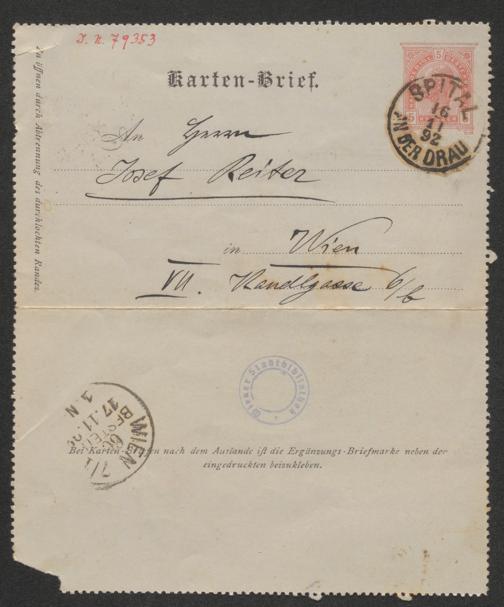 I. N. 79353
Karten-Brief.
5 5
SPITAL
16
11
92
AN DER DRAU
An Herrn
Josef Reiter
in Wien
VII. Kandlgasse 6/b
Zu öffnen durch Abtrennung des durchlochten Randes.
Wiener Stadtbibliothek
WIEN 7/1
60
BESTELLT
17.11.92
1. N
Bei Karten-Briefen nach dem Auslande ist die Ergänzungs-Briefmarke neben der
eingedruckten beizukleben.